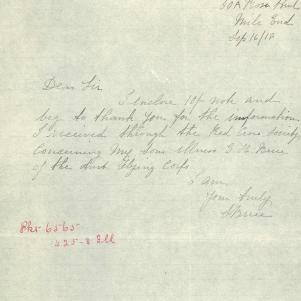 60A Rose Street
Mile End
Sep 16/18
Dear Sir
I enclose 10/- note and
beg to thank you for the information
I received through the Red Cross Society
Concerning My Sons illness
of the Aust Flying Corps.
I am
Yours truly